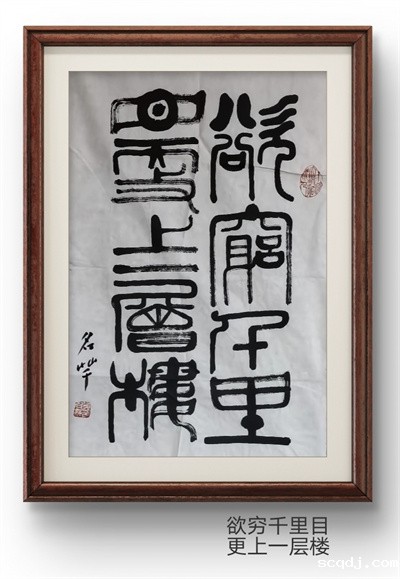 欲窮千里
目更上一層樓
名
欲穷千里目
更上一层楼
scqdj.com